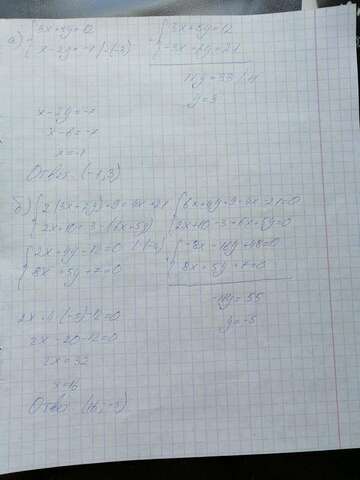 а) { 3x+5y=12
x-2y=-7 |·(-3)
{ 3x+5y=12
-3x+6y=21
11y=33 |:11
y=3
x-2y=-7
x-6=-7
x=-1
Ответ: (-1;3)
б) { 2(3x+2y)+9=4x+21
2x+10=3-(6x+5y)
{ 6x+4y+9-4x-21=0
2x+10-3+6x+5y=0
{ 2x+4y-12=0 |·(-4)
8x+5y+7=0
{ -8x-16y+48=0
8x+5y+7=0
-11y=55
y=-5
2x+4·(-5)-12=0
2x-20-12=0
2x=32
x=16
Ответ: (16;-5)